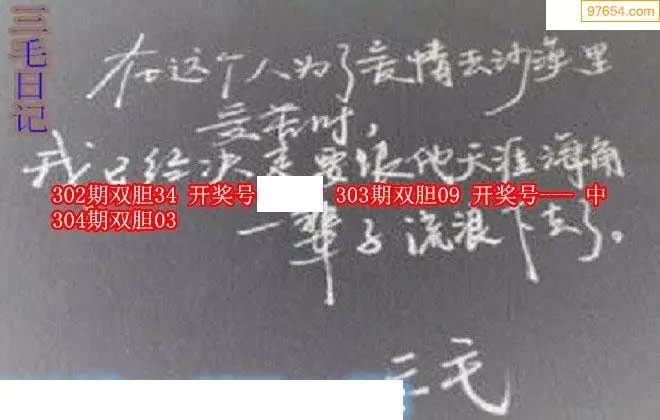 97654.com
三毛日记
在这个人为了爱情去沙漠里
受苦时，
我已经决定要跟他天涯海角
302期双胆34 开奖号 303期双胆09 开奖号--- 中
304期双胆03
一辈子流浪下去了。
三毛